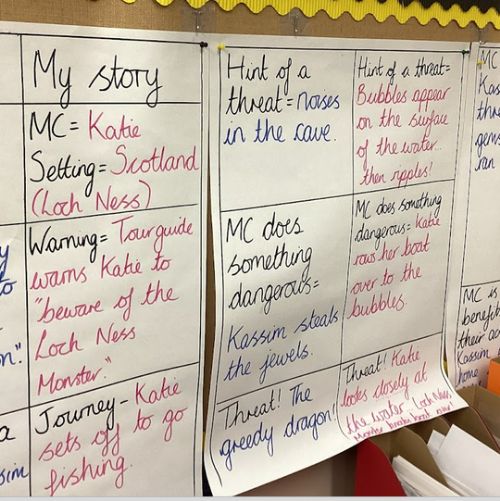 My story
MC = Katie
Setting = Scotland
(Loch Ness)
Warning = Tour guide
warns Katie to
"beware of the
Loch Ness
Monster."
Journey - Katie
sets off to go
fishing.
Hint of a
threat = noises
in the cave.
MC does
something
dangerous =
Kassim steals
the jewels.
Threat! The
greedy dragon!
Hint of a threat =
Bubbles appear
on the surface
of the water...
then ripples!
MC does something
dangerous = Katie
rows her boat
over to the
bubbles.
Threat! Katie
looks closely at
the water. Loch Ness
Monster breaks boat
MC
Kass
thr
gem
ran
MC is
benefi
their ac
Kassim
home